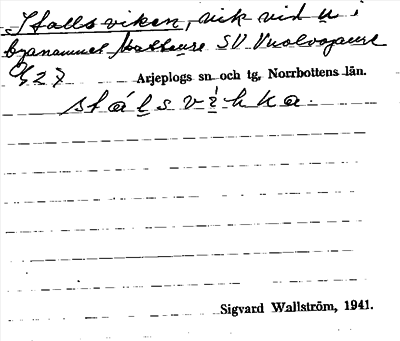 Stallsviken, vik vid u i
byanamnet SV
927 Arjeplogs sn och tg, Norrbottens län.
stálsvìhka.
Sigvard Wallström, 1941.